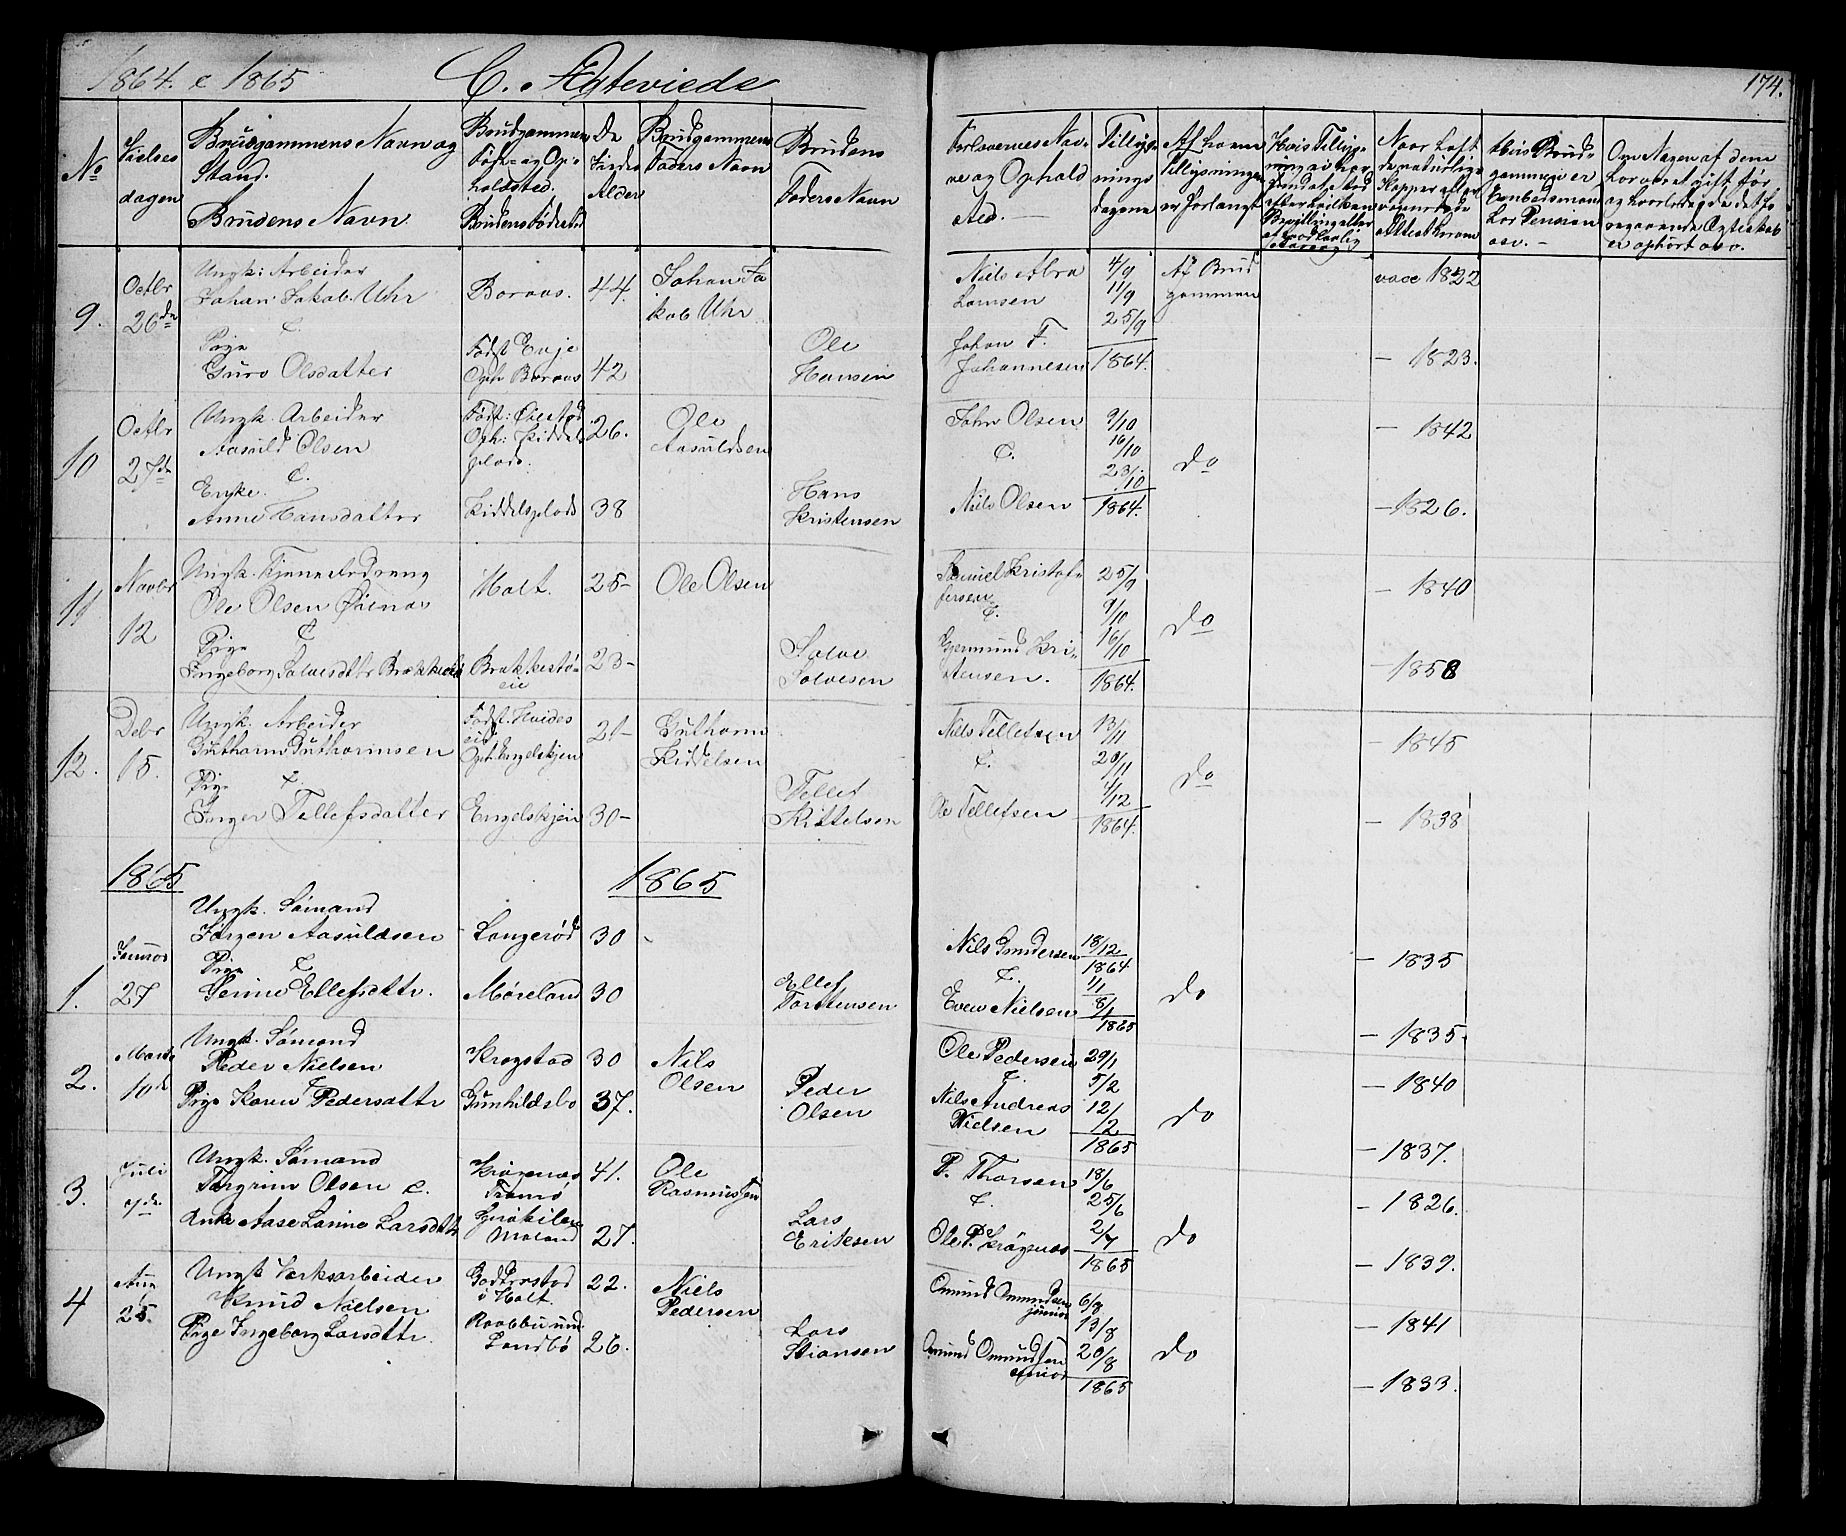 1864. & 1865
C. Ægteviede
174.
No
Vielses
dagen
Brudgommens Navn og
Stand.
Brudens Navn
Brudgommens
Føde- og Op-
holdsted.
Brudens Fødested
De
Viedes
Alder
Brudgommens
Faders Navn
Brudens
Faders Navn
Forlovernes Nav-
ne og Ophold
sted.
Tillys-
nings
dagene
Af hvem
Tillysningen
er forlangt
Hvis Tillys-
ning ei har
fundet Sted
efter hvilken
Bevilling eller
Naar havt
de naturlige
Kopper eller
vaccinerede
Attest hvorom
Hvis Brud-
gommen er
Embedsmand
hvor Pension
osv.
Om Nogen af dem
har været gift før
og hvorledes det fo
regaaende Ægteskab
er ophørt osv.
9.
Octbr
26de
Ungk: Arbeider
Johan Jakob Uhr
&
Pige
Guro Olsdatter
Boraas.
Født Evje
Oph Boraas
44.
42
Johan Ja
kob Uhr
Ole
Hansen
Niels Abra
hamsen
Johan F.
Johannesen
4/9
11/9
25/9
1864.
Af Brud
gommen
vacc 1822
— 1823.
10
Octbr
27de
Ungk. Arbeider
Aasuld Olsen
&.
Enke.
Anne Hansdatter
Født: Øiestad
Oph: Kiddels
plads.
Kiddelsplads
26.
38
Ole
Aasuldsen
Hans
Kristensen
John Olsen
&.
Niels Olsen
9/10
16/10
23/10
1864.
do
— 1842
— 1826.
11.
Novbr
12
Ungk. Tjenestedreng
Ole Olsen
&
Pige
Ingeborg Salvesdtr
Holt.
Brækkestø-
eie
25-
23-
Ole Olsen
Salve
Salvesen
Samuel Kristof-
fersen
&.
Gjermund Kri-
stensen.
25/9
9/10
16/10
1864.
do
— 1840
— 1858
12.
Debr
15.
Ungk. Arbeider
Guthorm Guthormsen
&.
Pige
Inger Tellefsdatter
Født. Hvides
eid
Oph. Engelskjen
Engelskjen
21-
30-
Guthorm
Kiddelsen
Tellef
Kittelsen
Nils Tellefsen
&.
Ole Tellefsen
13/11
20/11
4/12
1864.
do
— 1845
— 1838
1865
1865
1.
Januar
27
Ungk. Sømand
Jørgen Aasuldsen
&
Pige
Serine Ellefsdttr.
Langerød
Møreland
30
30
Ellef
Torstensen
Nils Gundersen
&.
Even Nielsen
18/12
1864
1/1
8/1
1865
do
— 1835
— 1835.
2.
Marts
10de
Ungk. Sømand
Peder Nielsen
&
Pige Karen Pedersdttr
Krogstad
Gunhildsbo
30
37.
Nils
Olsen
Peder
Olsen
Ole Pedersen
&.
Nils Andreas
Nielsen
29/1
5/2
12/
12
1865
do
— 1840
— 1837.
3.
Juli
7de
Ungk. Sømand
Torgrim Olsen &.
Enke Aase Larine Larsdttr
Krøgenæs
Tromø
41.
27.
Ole
Rasmussen
Lars
Eriksen
P. Thorsen
&.
Ole P. Krøgenæs
18/6
25/6
2/7
1865
do
— 1826.
— 1839.
4
Aug
25.
Ungk Værksarbeider
Knud Nielsen
Pige Ingeborg Larsdttr.
i Holt.
Landbø
22.
26.
Niels
Pedersen
Lars
Stiansen
Omund Omundsen
junior
Omund Omundsen
senior
6/8
13/8
20/8
1865
do
— 1841
— 1833.